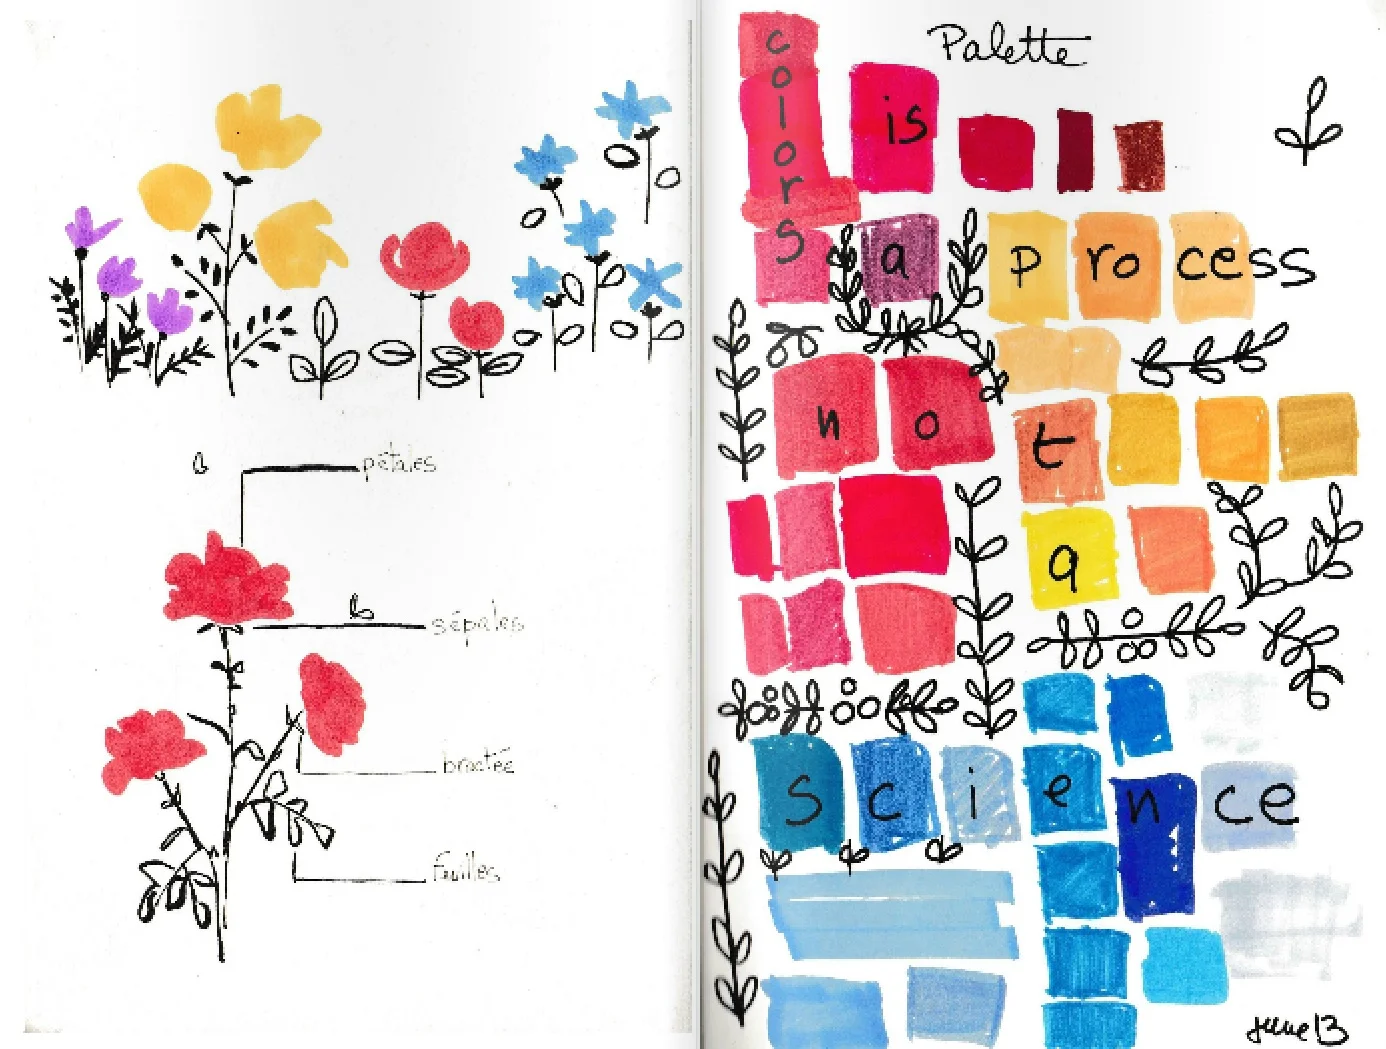 pétales
sépales
bractée
feuilles
Palette
colors
is
a process
not
a
science
june 13